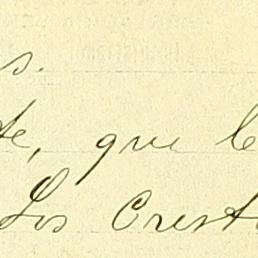 s.
te, que le
Los Crest